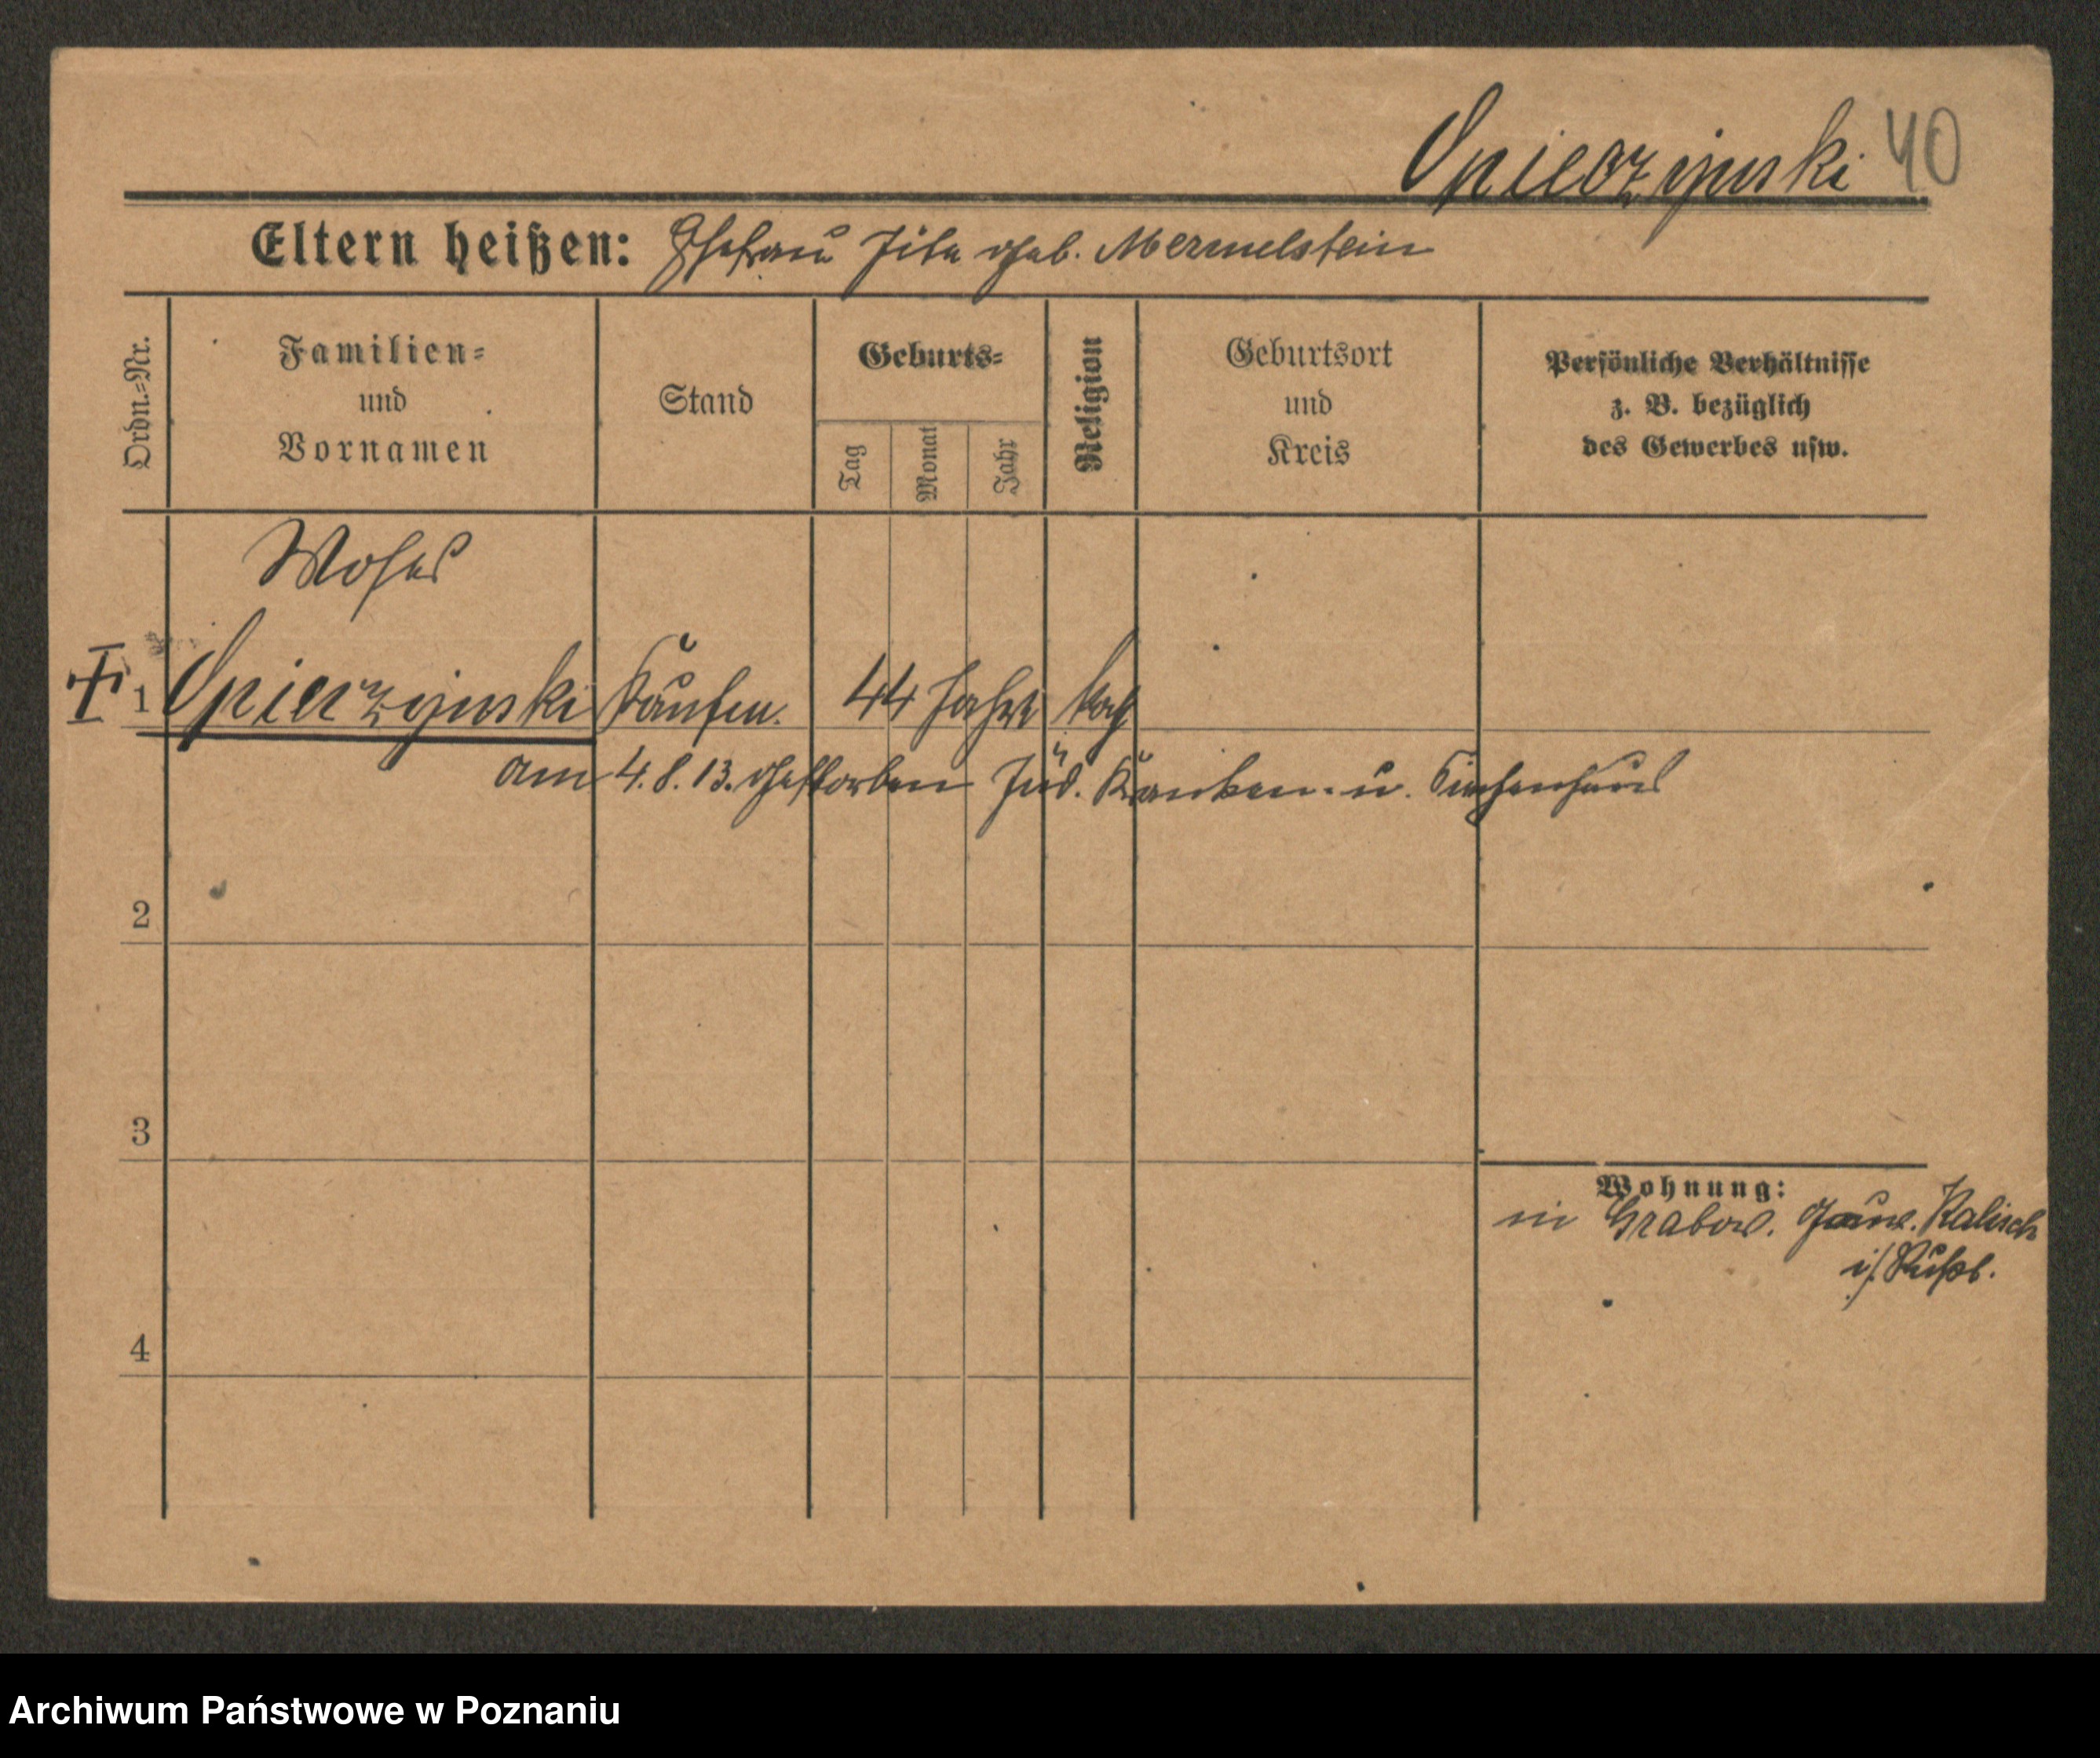 Spierzynski 40
Eltern heißen: Ehefrau Jita geb. Mermelstein
Ordn.=Nr.
Familien=
und
Vornamen
Stand
Geburts=
Tag
Monat
Jahr
Religion
Geburtsort
und
Kreis
Persönliche Verhältnisse
z. B. bezüglich
des Gewerbes usw.
Moses
1 Spierzynski Kaufm. 44 Jahre
am 4.8.13. gestorben Jüd. Kranken- u. Siechenhaus
2
3
Wohnung:
in Grabow. Gouv. Kalisch
i/Rußl.
4
Archiwum Państwowe w Poznaniu